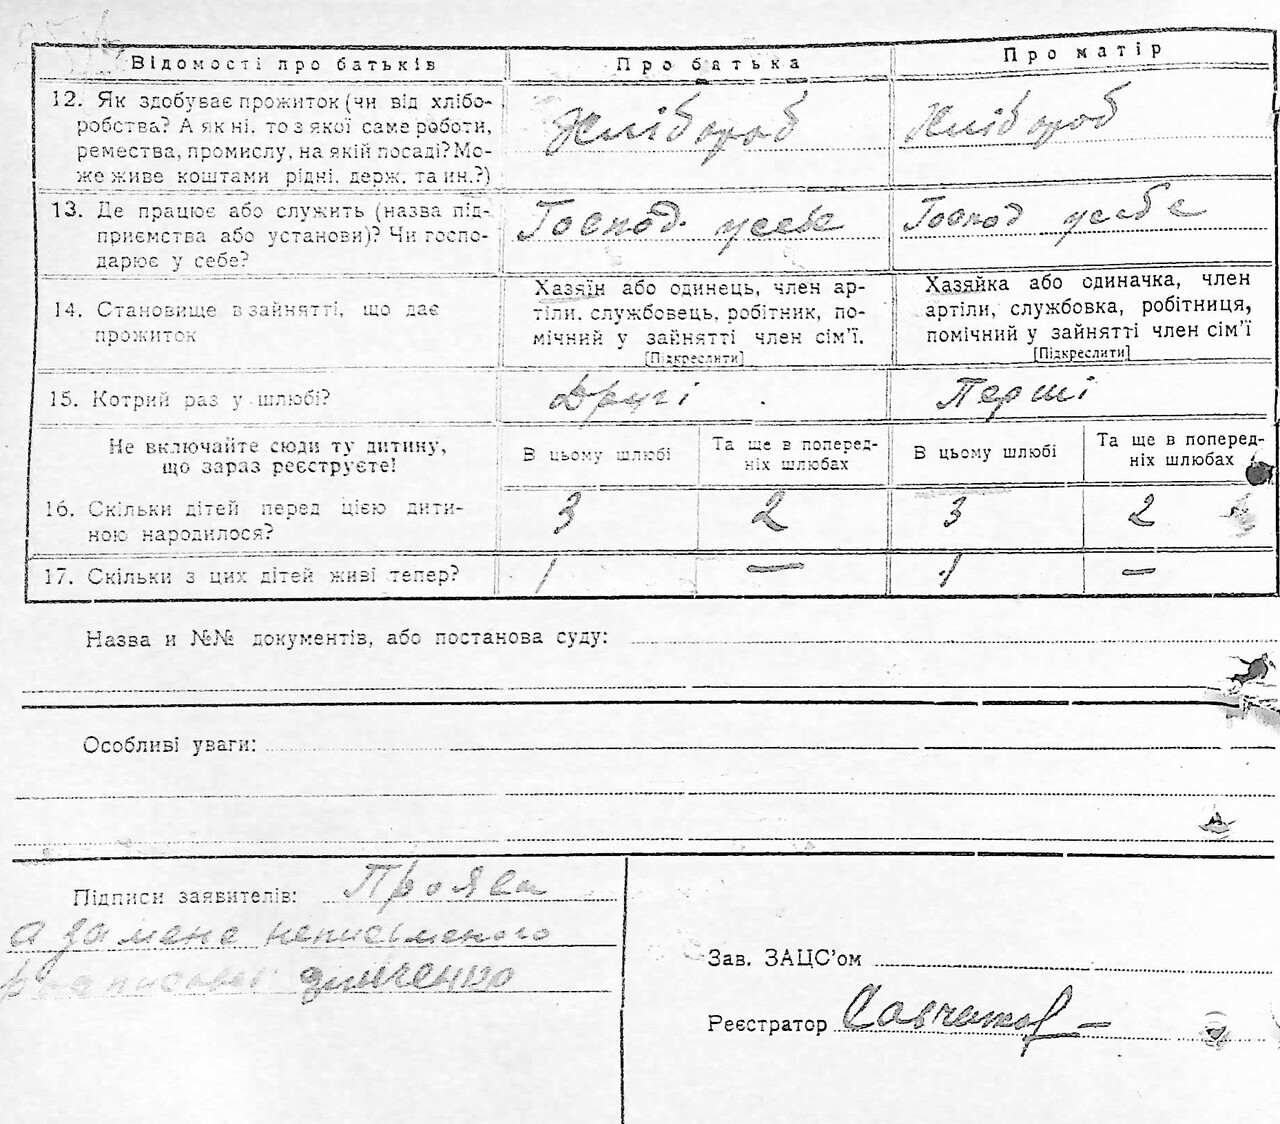 Відомості про батьків Про батька Про матір
12. Як здобуває прожиток (чи від хлібо- Хлібороб Хлібороб
робства? А як ні, то з якої саме роботи,
ремества, промислу, на якій посаді? Мо-
же живе коштами рідні, держ. та ин.?)
13. Де працює або служить (назва під- Господ. усебе Господ усебе
приємства або установи)? Чи госпо-
дарює у себе?
14. Становище в занятті, що дає прожиток
Хазяїн або одинець, член ар-
тіли, службовець, робітник, по-
мічний у зайнятті член сім'ї.
[Підкреслити]
Хазяйка або одиначка, член
артіли, службовка, робітниця,
помічний у зайнятті член сім'ї
[Підкреслити]
15. Котрий раз у шлюбі? Другі Перші
Не включайте сюди ту дитину,
що зараз реєструєте!
В цьому шлюбі Та ще в поперед-
ніх шлюбах
В цьому шлюбі Та ще в поперед-
ніх шлюбах
16. Скільки дітей перед цією дити- 3 2 3 2
ною народилося?
17. Скільки з цих дітей живі тепер? 1 — 1 —
Назва и №№ документів, або постанова суду:
Особливі уваги:
Підписи заявителів:
а за мене неписьменого
Зав. ЗАЦС'ом
Реєстратор